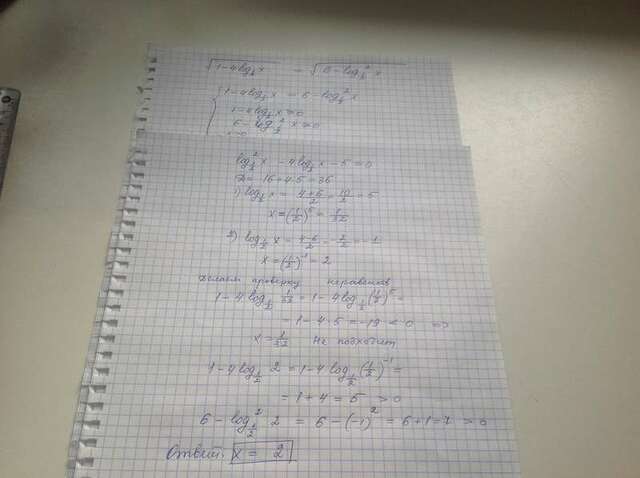 √(1-4log_{1/2}x) = √(6-log²_{1/2}x)
1-4log_{1/2}x = 6-log²_{1/2}x
1-4log_{1/2}x ≥ 0
6-log²_{1/2}x ≥ 0
x>0
log²_{1/2}x - 4log_{1/2}x - 5 = 0
D = 16+4·5 = 36
1) log_{1/2}x = (4+6)/2 = 10/2 = 5
x = (1/2)^5 = 1/32
2) log_{1/2}x = (4-6)/2 = -2/2 = -1
x = (1/2)^{-1} = 2
Делаем проверку неравенств
1-4log_{1/2} 1/32 = 1-4log_{1/2}(1/2)^5 =
= 1-4·5 = -19 < 0 ⇒
x = 1/32 не подходит
1-4log_{1/2} 2 = 1-4log_{1/2}(1/2)^{-1} =
= 1+4 = 5 > 0
6-log²_{1/2} 2 = 6-(-1)² = 6+1=7 > 0
Ответ: x = 2